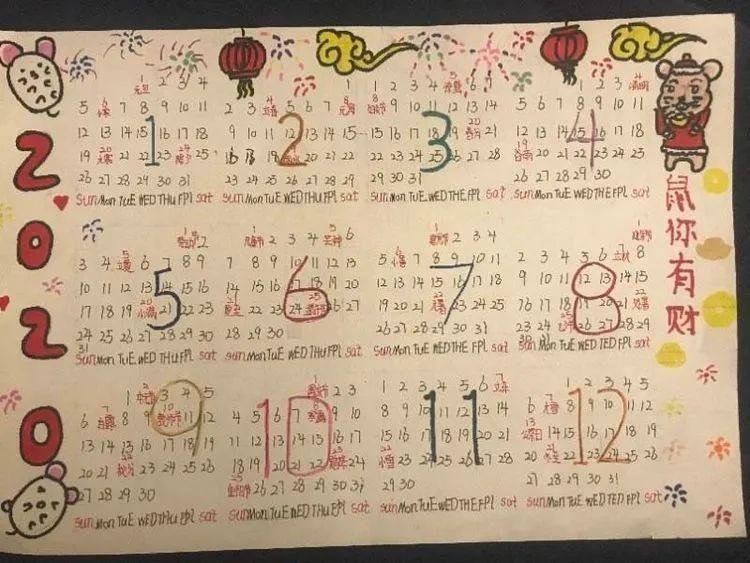 2020
鼠你有财
1
1元旦 2 3 4
5 6小寒 7 8 9 10 11
12 13 14 15 16 17 18
19 20大寒 21 22 23 24除夕 25
26 27 28 29 30 31
Sun Mon TuE WED THU FPI Sat
2
1
2 3 4立春 5 6 7 8元宵
9 10 11 12 13 14 15
16 17 18 20 21 22
23 24 25 26 27 28 29
Sun Mon TuE WED THU FPI Sat
3
1 2 3 4 5惊蛰 6 7
8妇女节 9 10 11 12 13 14
15 16 17 18 19 20春分 21
22 23 24 25 26 27 28
29 30 31
Sun Mon TuE WED THE FPI Sat
4
1 2 3 4清明
5 6 7 8 9 10 11
12 13 14 15 16 17 18
19谷雨 20 21 22 23 24 25
26 27 28 29 30
Sun Mon TuE WED THE FPI Sat
5
1劳动节 2
3 4 5立夏 6 7 8 9
10 11 12 13 14 15 16
17 18 19 20小满 21 22 23
24 25 26 27 28 29 30
31
Sun Mon TuE WED THU FPI Sat
6
1儿童节 2 3 4 5芒种 6
7 8 9 10 11 12 13
14 15 16 17 18 19 20
21夏至 22 23 24 25端午节 26 27
28 29 30
Sun Mon TuE WED THU FPI Sat
7
1建党节 2 3 4
5 6小暑 7 8 9 10 11
12 13 14 15 16 17 18
19 20 21 22大暑 23 24 25
26 27 28 29 30 31
Sun Mon TuE WED THE FPI Sat
8
1建军节
2 3 4 5 6 7立秋 8
9 10 11 12 13 14 15
16 17 18 19 20 21 22处暑
23 24 25七夕 26 27 28 29
30 31
Sun Mon TuE WED TED FPI Sat
9
1 2中元节 3 4 5
6 7白露 8 9 10教师节 11 12
13 14 15 16 17 18 19
20 21 22秋分 23 24 25 26
27 28 29 30
Sun Mon TuE WED THU FPI Sat
10
1国庆节 2 3
4 5 6 7 8寒露 9 10
11 12 13 14 15 16 17
18 19 20 21 22 23霜降 24
25重阳节 26 27 28 29 30 31
Sun Mon TuE WED THU FPI Sat
11
1 2 3 4 5 6 7立冬
8 9 10 11 12 13 14
15 16 17 18 19 20 21
22小雪 23 24 25 26 27 28
29 30
Sun Mon TuE WED THE FPI Sat
12
1 2 3 4 5
6 7大雪 8 9 10 11 12
13公祭日 14 15 16 17 18 19
20 21冬至 22 23 24 25 26
27 28 29 30 31
Sun Mon TuE WED TED FPI Sat